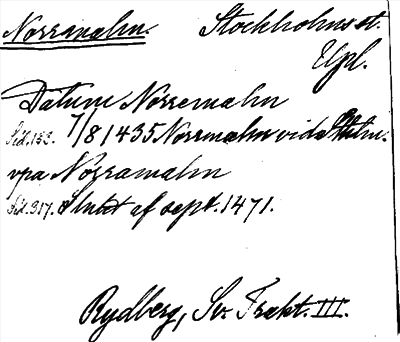 Norramalm. Stockholms st.
Upl.
Datum Norremalm
Sid. 153. 7/8 1435 Norrmalm vidh
vpa Norramalm
Sid. 317. Slutet af sept. 1471.
Rydberg, Sv. Trakt. III.